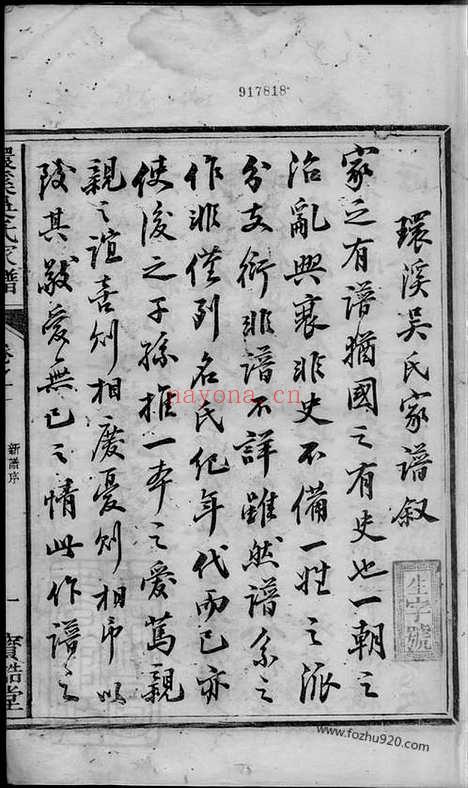 917818
環溪吳氏家譜叙
家之有譜猶國之有史也一朝之
治亂興衰非史不備一姓之派
分支衍非譜不詳雖然譜系之
作非僅列名氏纪年代而已亦
使後之子孫推一本之愛篤親
親之誼喜則相慶憂則相吊以
致其敬愛無已之情此作譜之
生字號
環溪吳氏家譜
新譜序
一
寶誥堂
nayona.cn
www.fozhu920.com